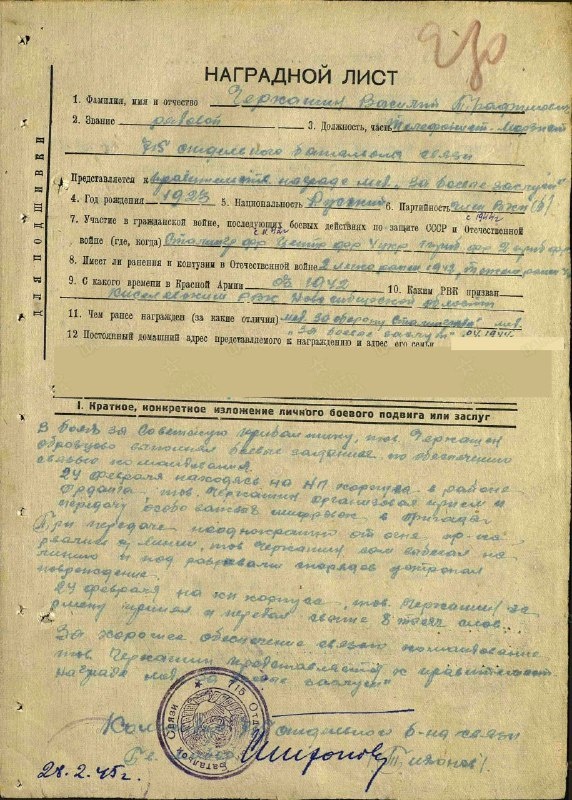 230
НАГРАДНОЙ ЛИСТ
1. Фамилия, имя и отчество Черкашин Василий
2. Звание рядовой 3. Должность, часть телефонист-морзист
715 отдельного батальона связи
Представляется к правительств. награде мед. „За боевые заслуги"
4. Год рождения 1923 5. Национальность Русский 6. Партийность член ВКП(б)
с 1944г
7. Участие в гражданской войне, последующих боевых действиях по защите СССР и Отечественной
войне (где, когда)
8. Имеет ли ранения и контузии в Отечественной войне 1942,
9. С какого времени в Красной Армии 1942 10. Каким РВК призван
Киселевским РВК Новосибирской области
11. Чем ранее награжден (за какие отличия) мед. за оборону Сталинграда, мед.
„За боевые заслуги" 04.1944.
12 Постоянный домашний адрес представляемого к награждению и адрес его семьи
ДЛЯ ПОДШИВКИ
I. Краткое, конкретное изложение личного боевого подвига или заслуг
В боях за Советскую прибалтику, тов. Черкашин
образцово выполнял боевые задания по обеспечению
связью командования.
24 февраля находясь на НП корпуса в районе
тов. Черкашин организовал прием и
передачу особо важных шифровок в бригады.
При передаче неоднократно от огня
линии, тов. Черкашин сам выбегал на
линию и под разрывами снарядов устранял
повреждение.
24 февраля на кп корпуса, тов. Черкашин за
смену принял и передал свыше 8 тысяч слов.
За хорошее обеспечение связью командование
тов. Черкашин представляется к правительст.
награде мед. „За боевые заслуги"
715 Отд. Батальон Связи
отдельного б-на связи
Тихонов
28.2.45г.